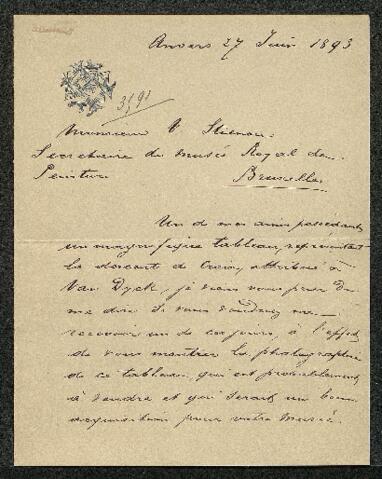 Anvers 27 Juin 1893
3591
Monsieur
Secretaire du Musée Royal de
Peinture
Bruxelles
Un de mes amis possedant
un magnifique tableau, representant
la descent de Croix, attribué à
Van Dyck, je viens vous prier de
me dire si vous voudrez me
recevoir un de ces jours, à l'effet
de vous montrer la photographie
de ce tableau, qui est probablement
à vendre et qui serait une bonne
acquisition pour votre Musée.